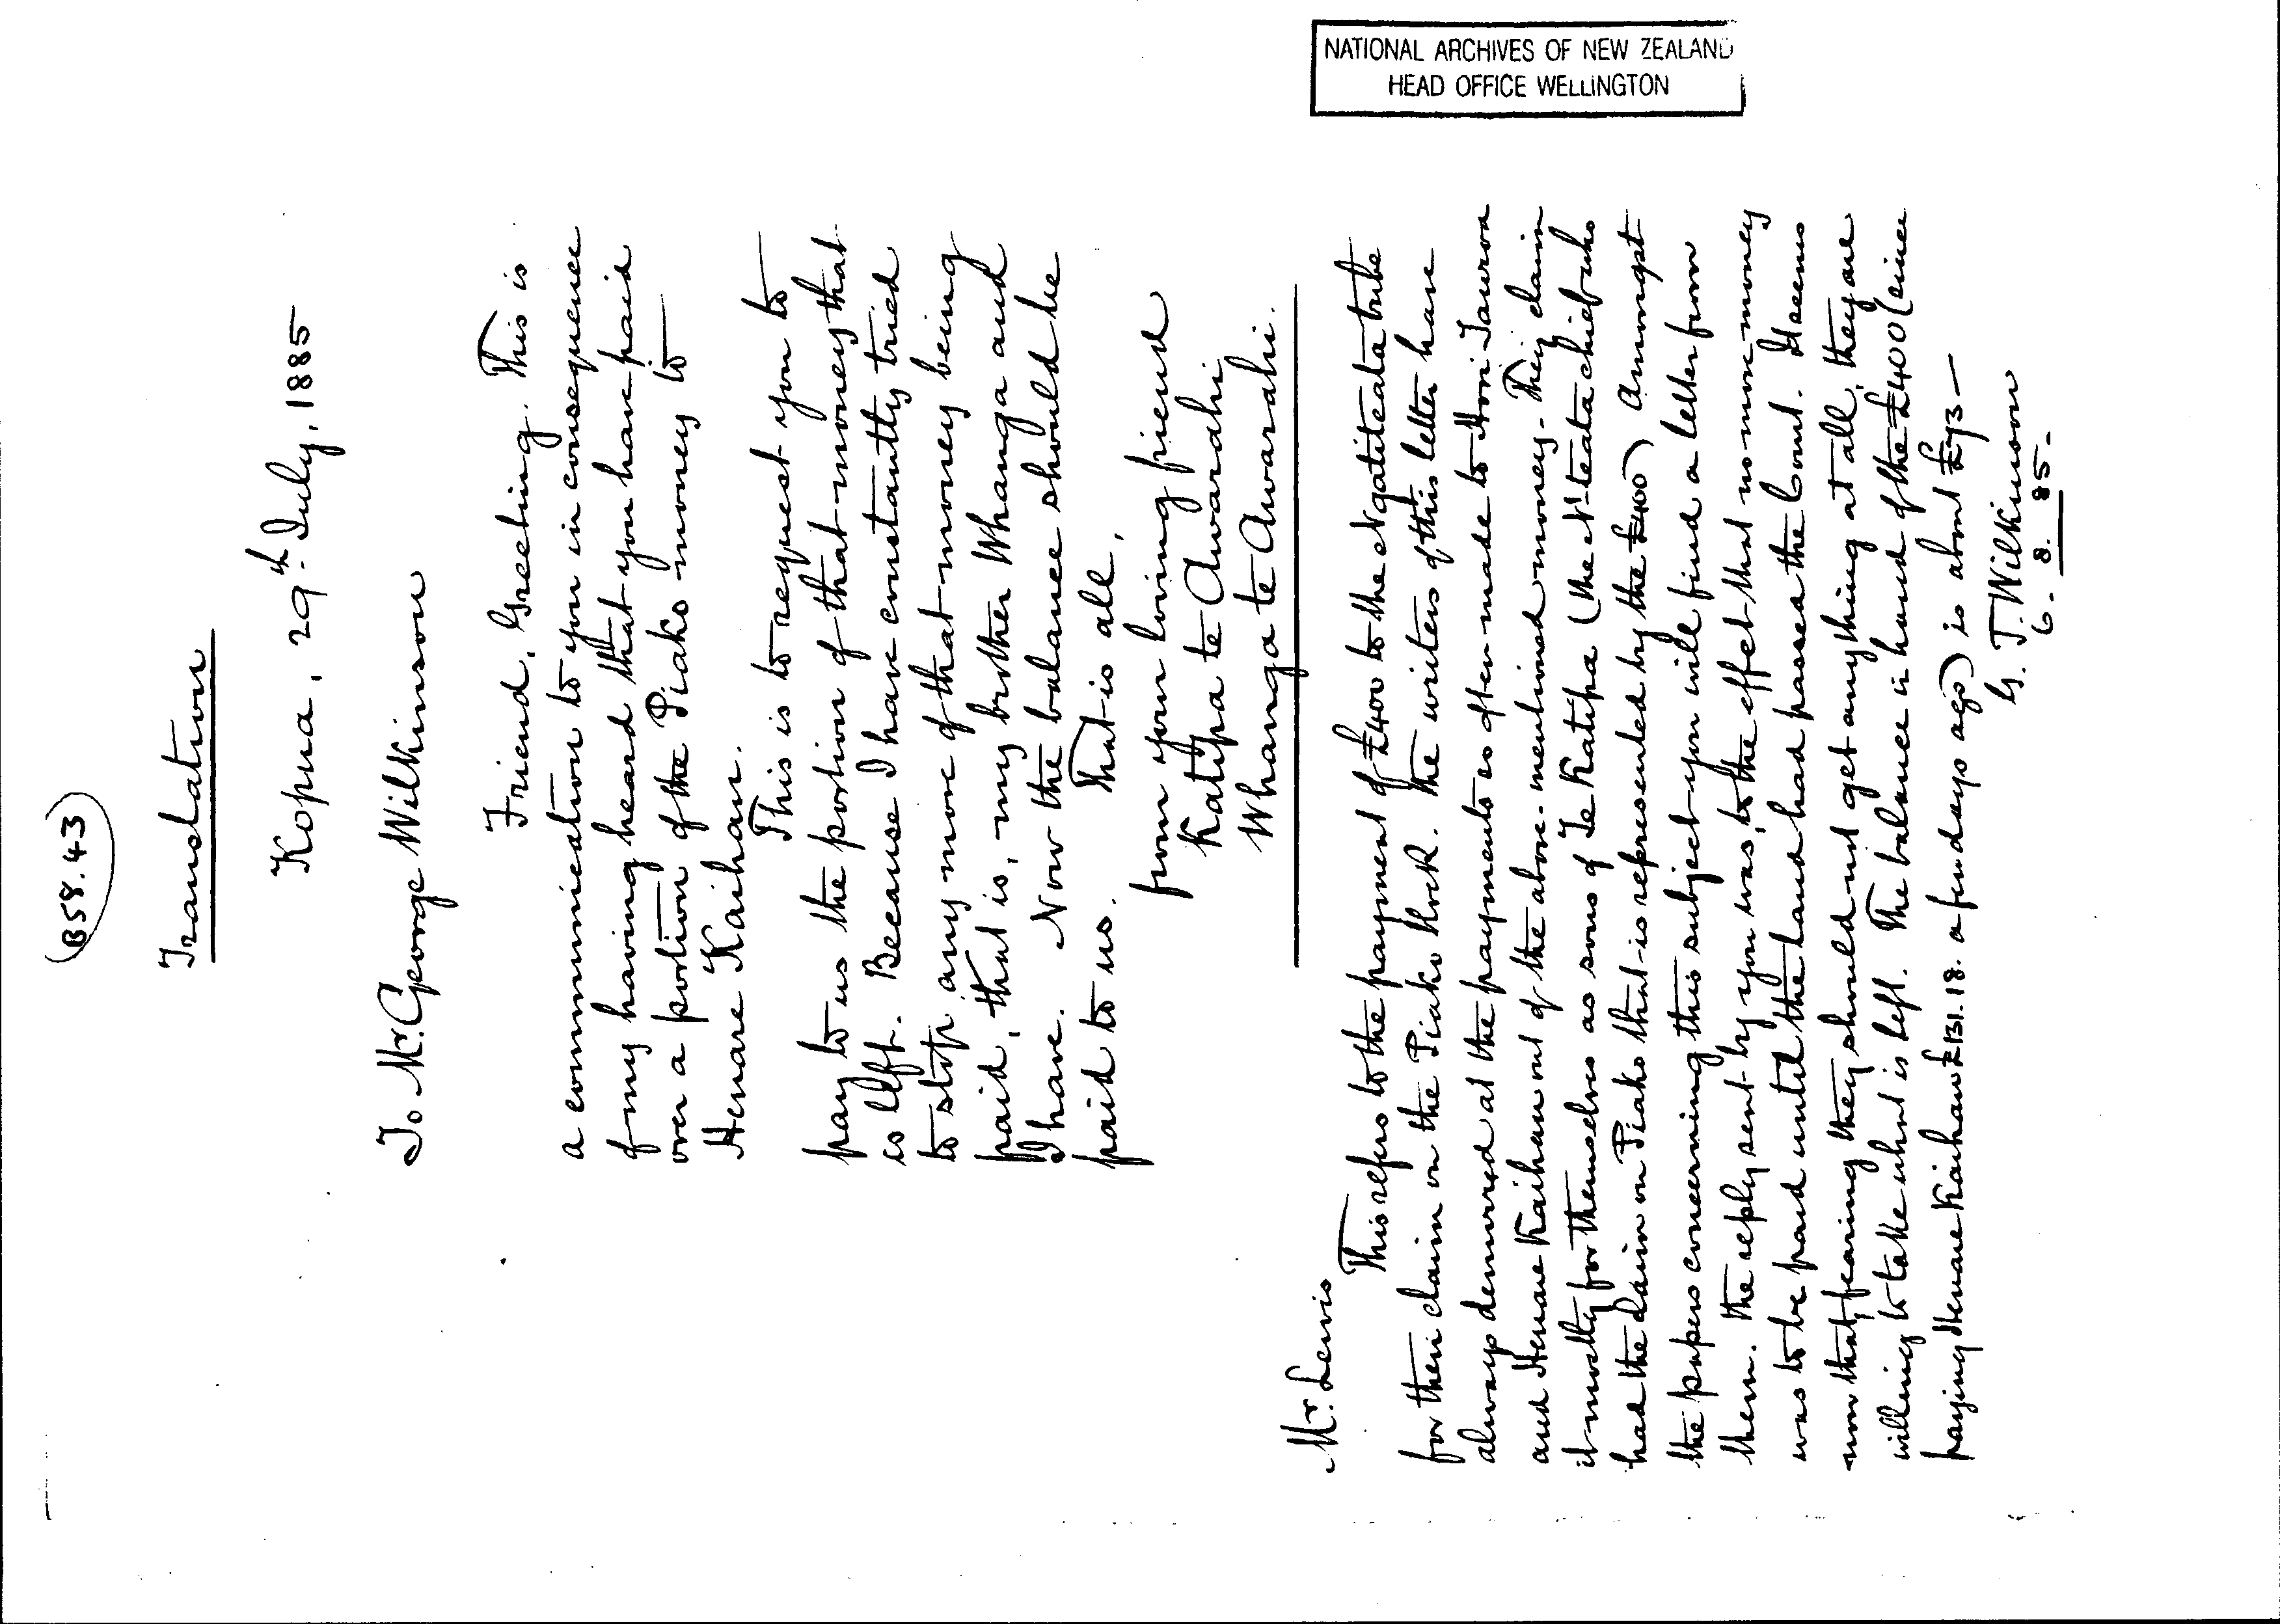 B58.43
Translation
Kopua, 29th July, 1885
To Mr. George Wilkinson
Friend, Greeting. This is
a communication to you in consequence
of my having heard that you have paid
over a portion of the Piako money to
Henare Kaihau.
This is to request you to
pay to us the portion of that money that
is left. Because I have constantly tried
to stop any more of that money being
paid, that is, my brother Whanga and
I have. Now the balance should be
paid to us. That is all,
from your loving friend
Katipa te Awarahi
Whanga te Awarahi.
NATIONAL ARCHIVES OF NEW ZEALAND
HEAD OFFICE WELLINGTON
Mr. Lewis
This refers to the payment of £400 to the Ngatiteata tribe
for their claim on the Piako block. The writers of this letter have
always demurred at the payments so often made to Hori Tauroa
and Henare Kaihau out of the above-mentioned money. They claim
it mostly for themselves as sons of Te Katipa (the N'teata chief who
had the claim on Piako that is represented by the £400) Amongst
the papers concerning this subject you will find a letter from
them. The reply sent by you was, to the effect that no more money
was to be paid until the land had passed the Court. It seems
now that, fearing they should not get anything at all, they are
willing to take what is left. The balance in hand of the £400 (since
paying Henare Kaihau £131.18. a few days ago) is about £73 -
G. T. Wilkinson
6. 8. 85.